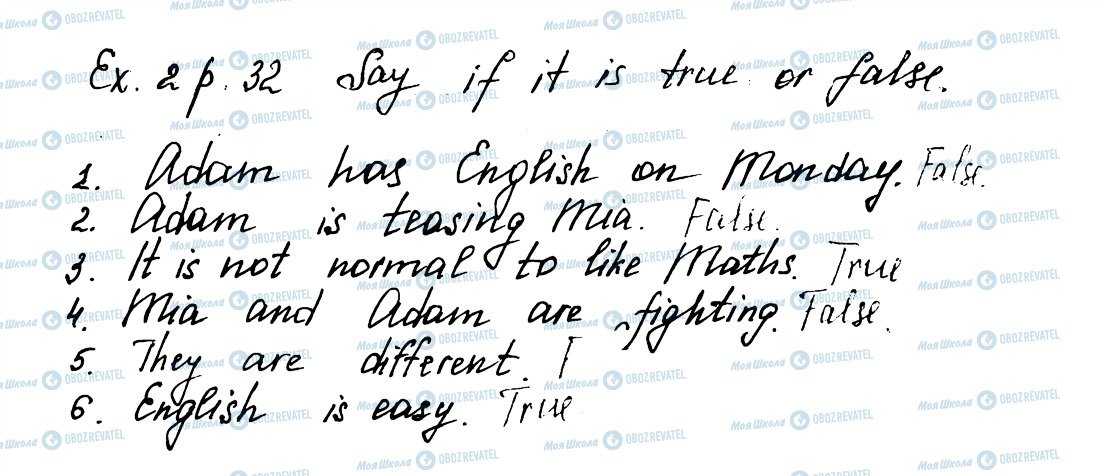 Ex. 2 p. 32 Say if it is true or false.
1. Adam has English on Monday. False.
2. Adam is teasing Mia. False.
3. It is not normal to like Maths. True
4. Mia and Adam are fighting. False.
5. They are different.
6. English is easy. True
Моя Школа OBOZREVATEL